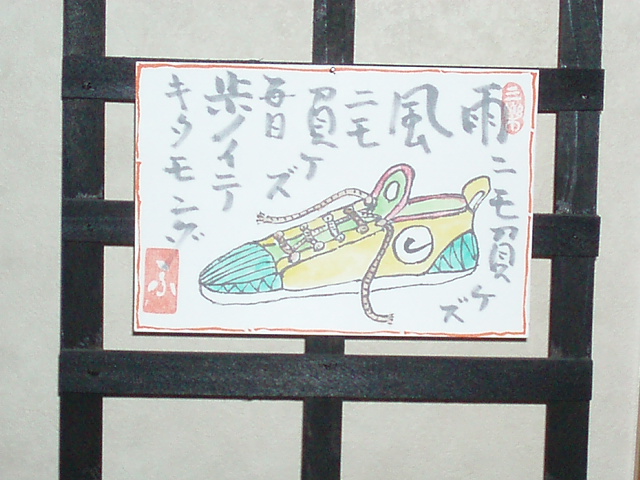 雨ニモ買ケズ
風
ニモ
買ケズ
毎日
歩ノイテ
キタモンダ
ふ